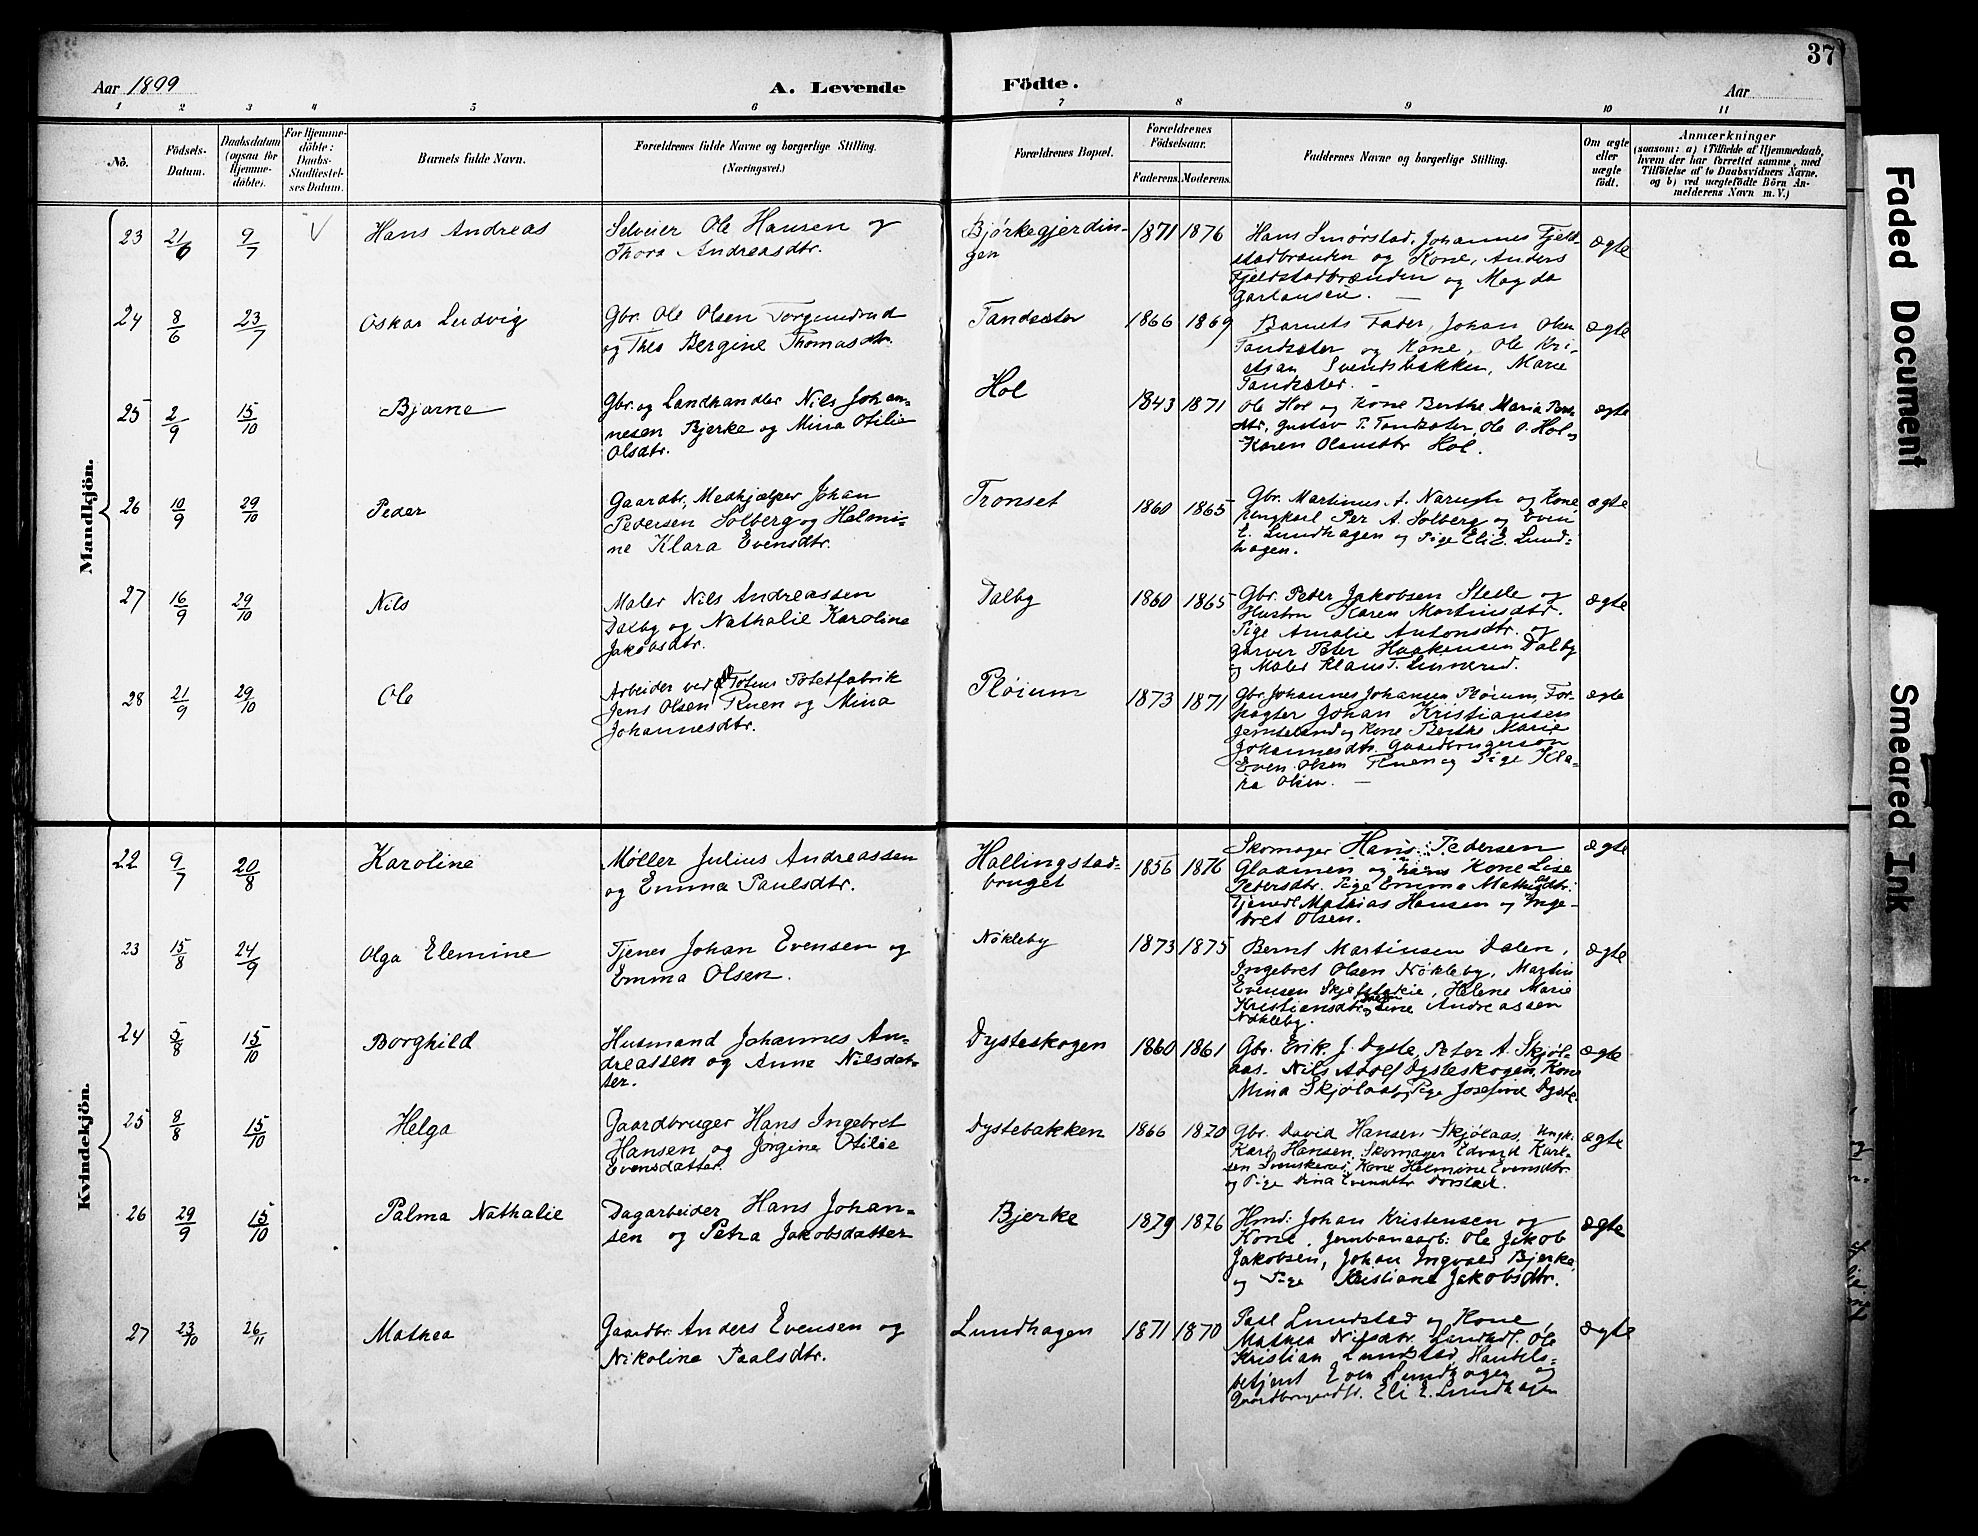 37
Aar 1899
A. Levende
Födte.
Aar
1 2 3 4 5 6 7 8 9 10 11
No.
Födsels-
Datum.
Daabsdatum
(ogsaa for
Hjemme-
döbte).
For Hjemme-
döbte:
Daabs-
Stadfæstel-
ses Datum.
Barnets fulde Navn.
Forældrenes fulde Navne og borgerlige Stilling.
(Næringsvei.)
Forældrenes Bopæl.
Forældrenes
Födselsaar.
Faderens. Moderens.
Faddernes Navne og borgerlige Stilling.
Om ægte
eller
uægte
født.
Anmærkninger
(saasom: a) i Tilfælde af Hjemmedaab,
hvem der har forrettet samme, med
Tilföielse af to Daabsvidners Navne.
og b) ved uægtefödte Börn An-
melderens Navn m. V.)
Mandkjön.
23 21/6 9/7 V Hans Andreas
Selveier Ole Hansen og
Thora Andreasdtr.
Bjørkegjerdin-
gen
1871 1876
Hans Smørstad, Johannes Fjeld-
stadbrænden og Kone, Anders
Fjeldstadbrænden og Magda
ægte
24 8/6 23/7 Oskar Ludvig
Gbr. Ole Olsen Torgunrud
og Thea Bergine Thomasdtr.
Tandsæter
1866 1869
Barnets Fader, Johan Olsen
Tandsæter og Kone, Ole Kri-
stian Svendsbakken, Marie
Tandsæter. -
ægte
25 2/9 15/10 Bjarne
Gbr. og Landhandler Nils Johan-
nesen Bjerke og Mina Otilie
Olsdtr.
Hol
1843 1871
Ole Hol og Kone Berthe Maria
dtr. Gustav T. Tandsæter, Ole O. Hol og
Karen Olausdtr Hol.
ægte
26 10/9 29/10 Peder
Gaardbr., Medhjælper Johan
Pedersen Solberg og Helmi-
ne Klara Evensdtr.
Tronset
1860 1865
Gbr. Martinus A. Narugta og Kone,
Ungkarl Per A. Solberg og Even
E. Lundhagen og Pige Eli E. Lund-
hagen.
ægte
27 16/9 29/10 Nils
Maler Nils Andreassen
Dalby og Nathalie Karoline
Jakobsdtr.
Dalby
1860 1865
Gbr. Peder Jakobsen Stele og
Hustru Karen Martinsdtr.
Pige Amalie Antonsdtr. og
Garver Peter Haakensen Dalby
og Maler Klaus T. Linnerud.
ægte
28 21/9 29/10 Ole
Arbeider ved Ø. Totens Potetfabrik
Jens Olsen Ruen og Mina
Johannesdtr.
Pløium
1873 1871
Gbr. Johannes Johansen Pløium, For-
pagter Johan Kristiansen
Jernteland og Kone Berthe Marie
Johannesdtr. Gaardbrugersøn
Even Olsen Ruen og Pige Kla-
ra Olsen. -
ægte
Kvindekjön.
22 9/7 20/8 Karoline
Møller Julius Andreassen
og Emma Paulsdtr.
Hallingstad-
bruget
1856 1876
Skomager Hans Pedersen
Glaamen og hans Kone Lise
Pedersdtr. Pige Emma Mathiasdtr.
Tjener Mathias Hansen og Inge-
bret Olsen.
ægte
23 15/8 24/9 Olga Elemine
Tjener Johan Evensen og
Emma Olsen.
Nøkleby
1873 1875
Bernt Martinsen Dalen,
Ingebret Olsen Nøkleby, Martin
Evensen Skjelstakie, Helene Marie
Kristiansdtr og Line Andreassen
Nøkleby.
ægte
24 5/8 15/10 Borghild
Husmand Johannes An-
dreassen og Anne Nilsdat-
ter.
Dysteskogen
1860 1861
Gbr. Erik J. Dyste, Peter A. Skjøl-
aas. Nils Adolf Dysteskogen, Kone
Mina Skjølaas og Pige Josefine Dyste.
ægte
25 8/8 15/10 Helga
Gaardbruger Hans Ingebret
Hansen og Jørgine Otilie
Evensdatter.
Dystebakken
1866 1870
Gbr. David Hansen Skjølaas, Ungk.
Karl Hansen, Skomager Edvard Karl-
sen Svenskerud, Kone Helmine Evensdtr.
og Pige Dina Evensdtr Dorstad.
ægte
26 29/9 15/10 Palma Nathalie
Dagarbeider Hans Johan-
sen og Petra Jakobsdatter
Bjerke
1879 1876
Hmd. Johan Kristensen og
Kone, Jernbanearb. Ole Jakob
Jakobsen, Johan Ingvald Bjerke,
og Pige Kristiane Jakobsdtr.
ægte
27 23/10 26/11 Mathea
Gaardbr. Anders Evensen og
Nikoline Paalsdtr.
Lundhagen
1871 1870
Paul Lundstad og Kone
Mathea Nilsdtr. Landhdl. Ole
Kristian Lundstad, Handels-
betjent Even Lundhagen og
Gaardbrugerdtr. Eli E. Lundhagen
ægte
Faded Document
Smeared Ink